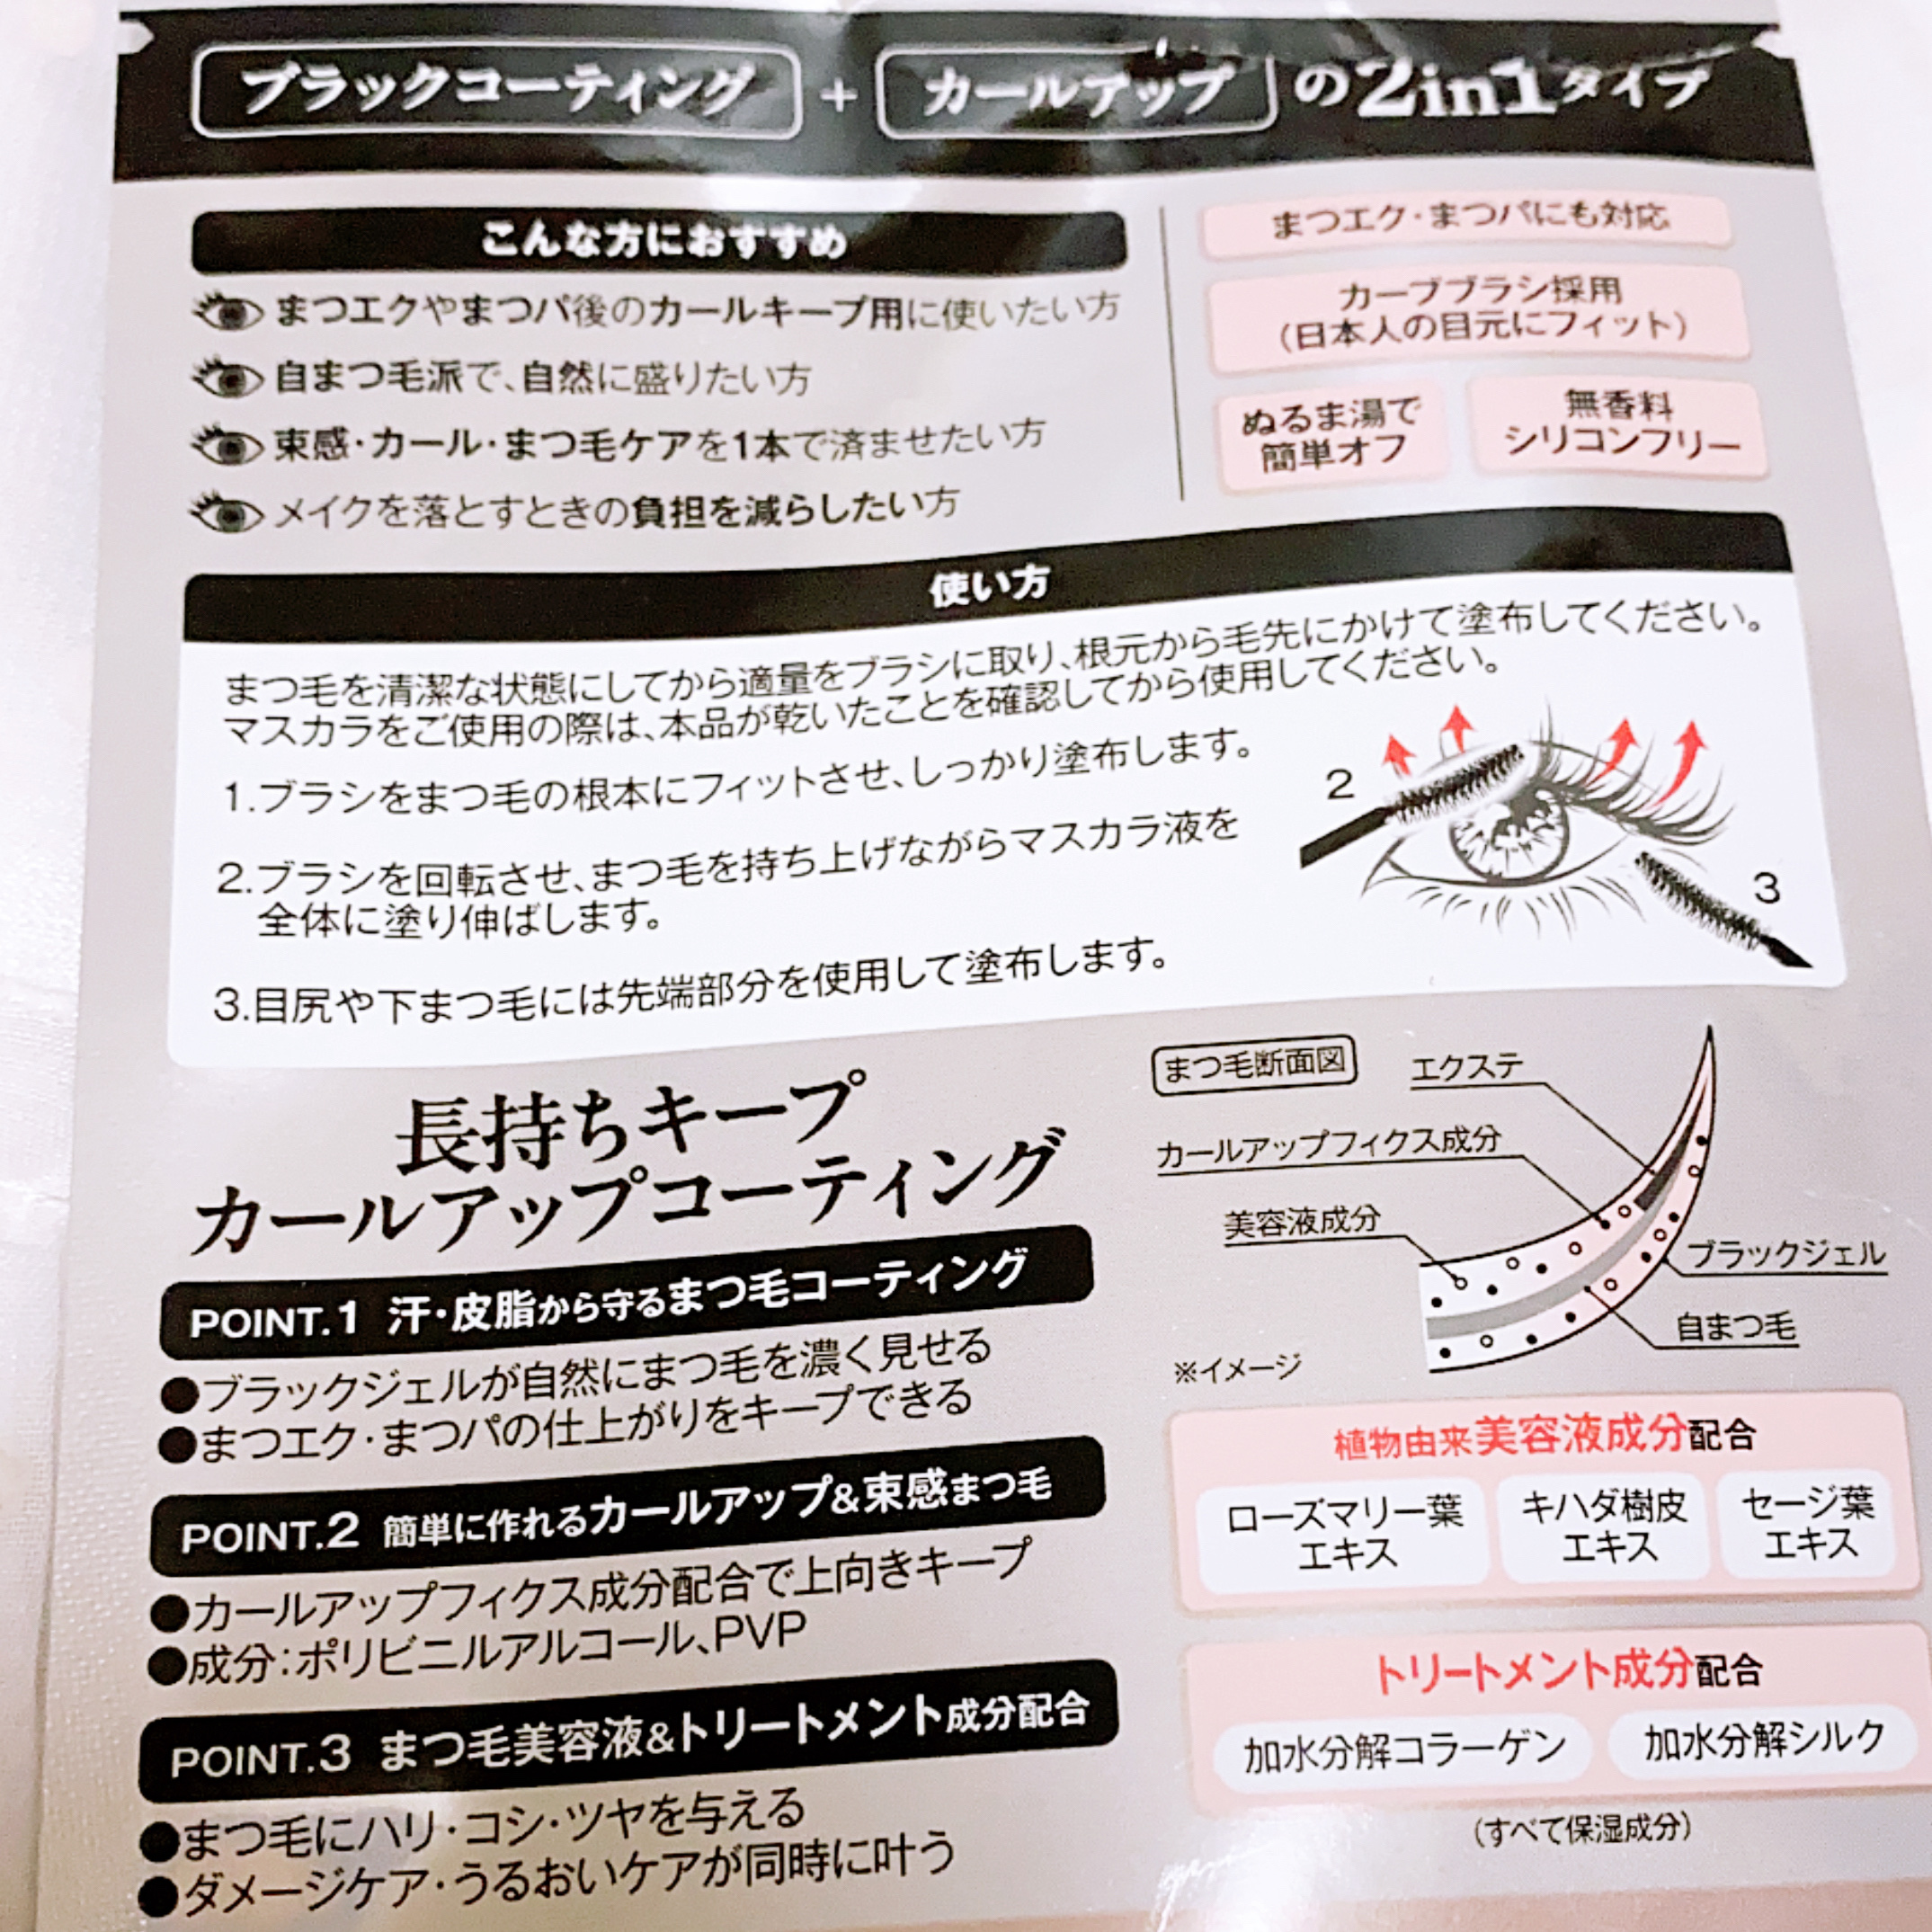 ブラックコーティング + カールアップ の2in1タイプ
こんな方におすすめ
まつエクやまつパ後のカールキープ用に使いたい方
自まつ毛派で、自然に盛りたい方
束感・カール・まつ毛ケアを1本で済ませたい方
メイクを落とすときの負担を減らしたい方
まつエク・まつパにも対応
カーブブラシ採用
(日本人の目元にフィット)
ぬるま湯で
簡単オフ
無香料
シリコンフリー
使い方
まつ毛を清潔な状態にしてから適量をブラシに取り、根元から毛先にかけて塗布してください。
マスカラをご使用の際は、本品が乾いたことを確認してから使用してください。
1.ブラシをまつ毛の根本にフィットさせ、しっかり塗布します。
2.ブラシを回転させ、まつ毛を持ち上げながらマスカラ液を
全体に塗り伸ばします。
3.目尻や下まつ毛には先端部分を使用して塗布します。
2
3
長持ちキープ
カールアップコーティング
POINT.1 汗・皮脂から守るまつ毛コーティング
●ブラックジェルが自然にまつ毛を濃く見せる
●まつエク・まつパの仕上がりをキープできる
POINT.2 簡単に作れるカールアップ&束感まつ毛
●カールアップフィクス成分配合で上向きキープ
●成分:ポリビニルアルコール、PVP
POINT.3 まつ毛美容液&トリートメント成分配合
●まつ毛にハリ・コシ・ツヤを与える
●ダメージケア・うるおいケアが同時に叶う
まつ毛断面図
エクステ
カールアップフィクス成分
美容液成分
ブラックジェル
自まつ毛
※イメージ
植物由来美容液成分配合
ローズマリー葉
エキス
キハダ樹皮
エキス
セージ葉
エキス
トリートメント成分配合
加水分解コラーゲン
加水分解シルク
(すべて保湿成分)